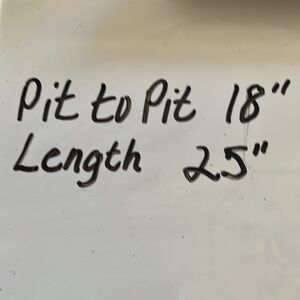 Pit to Pit 18"
Length 25"